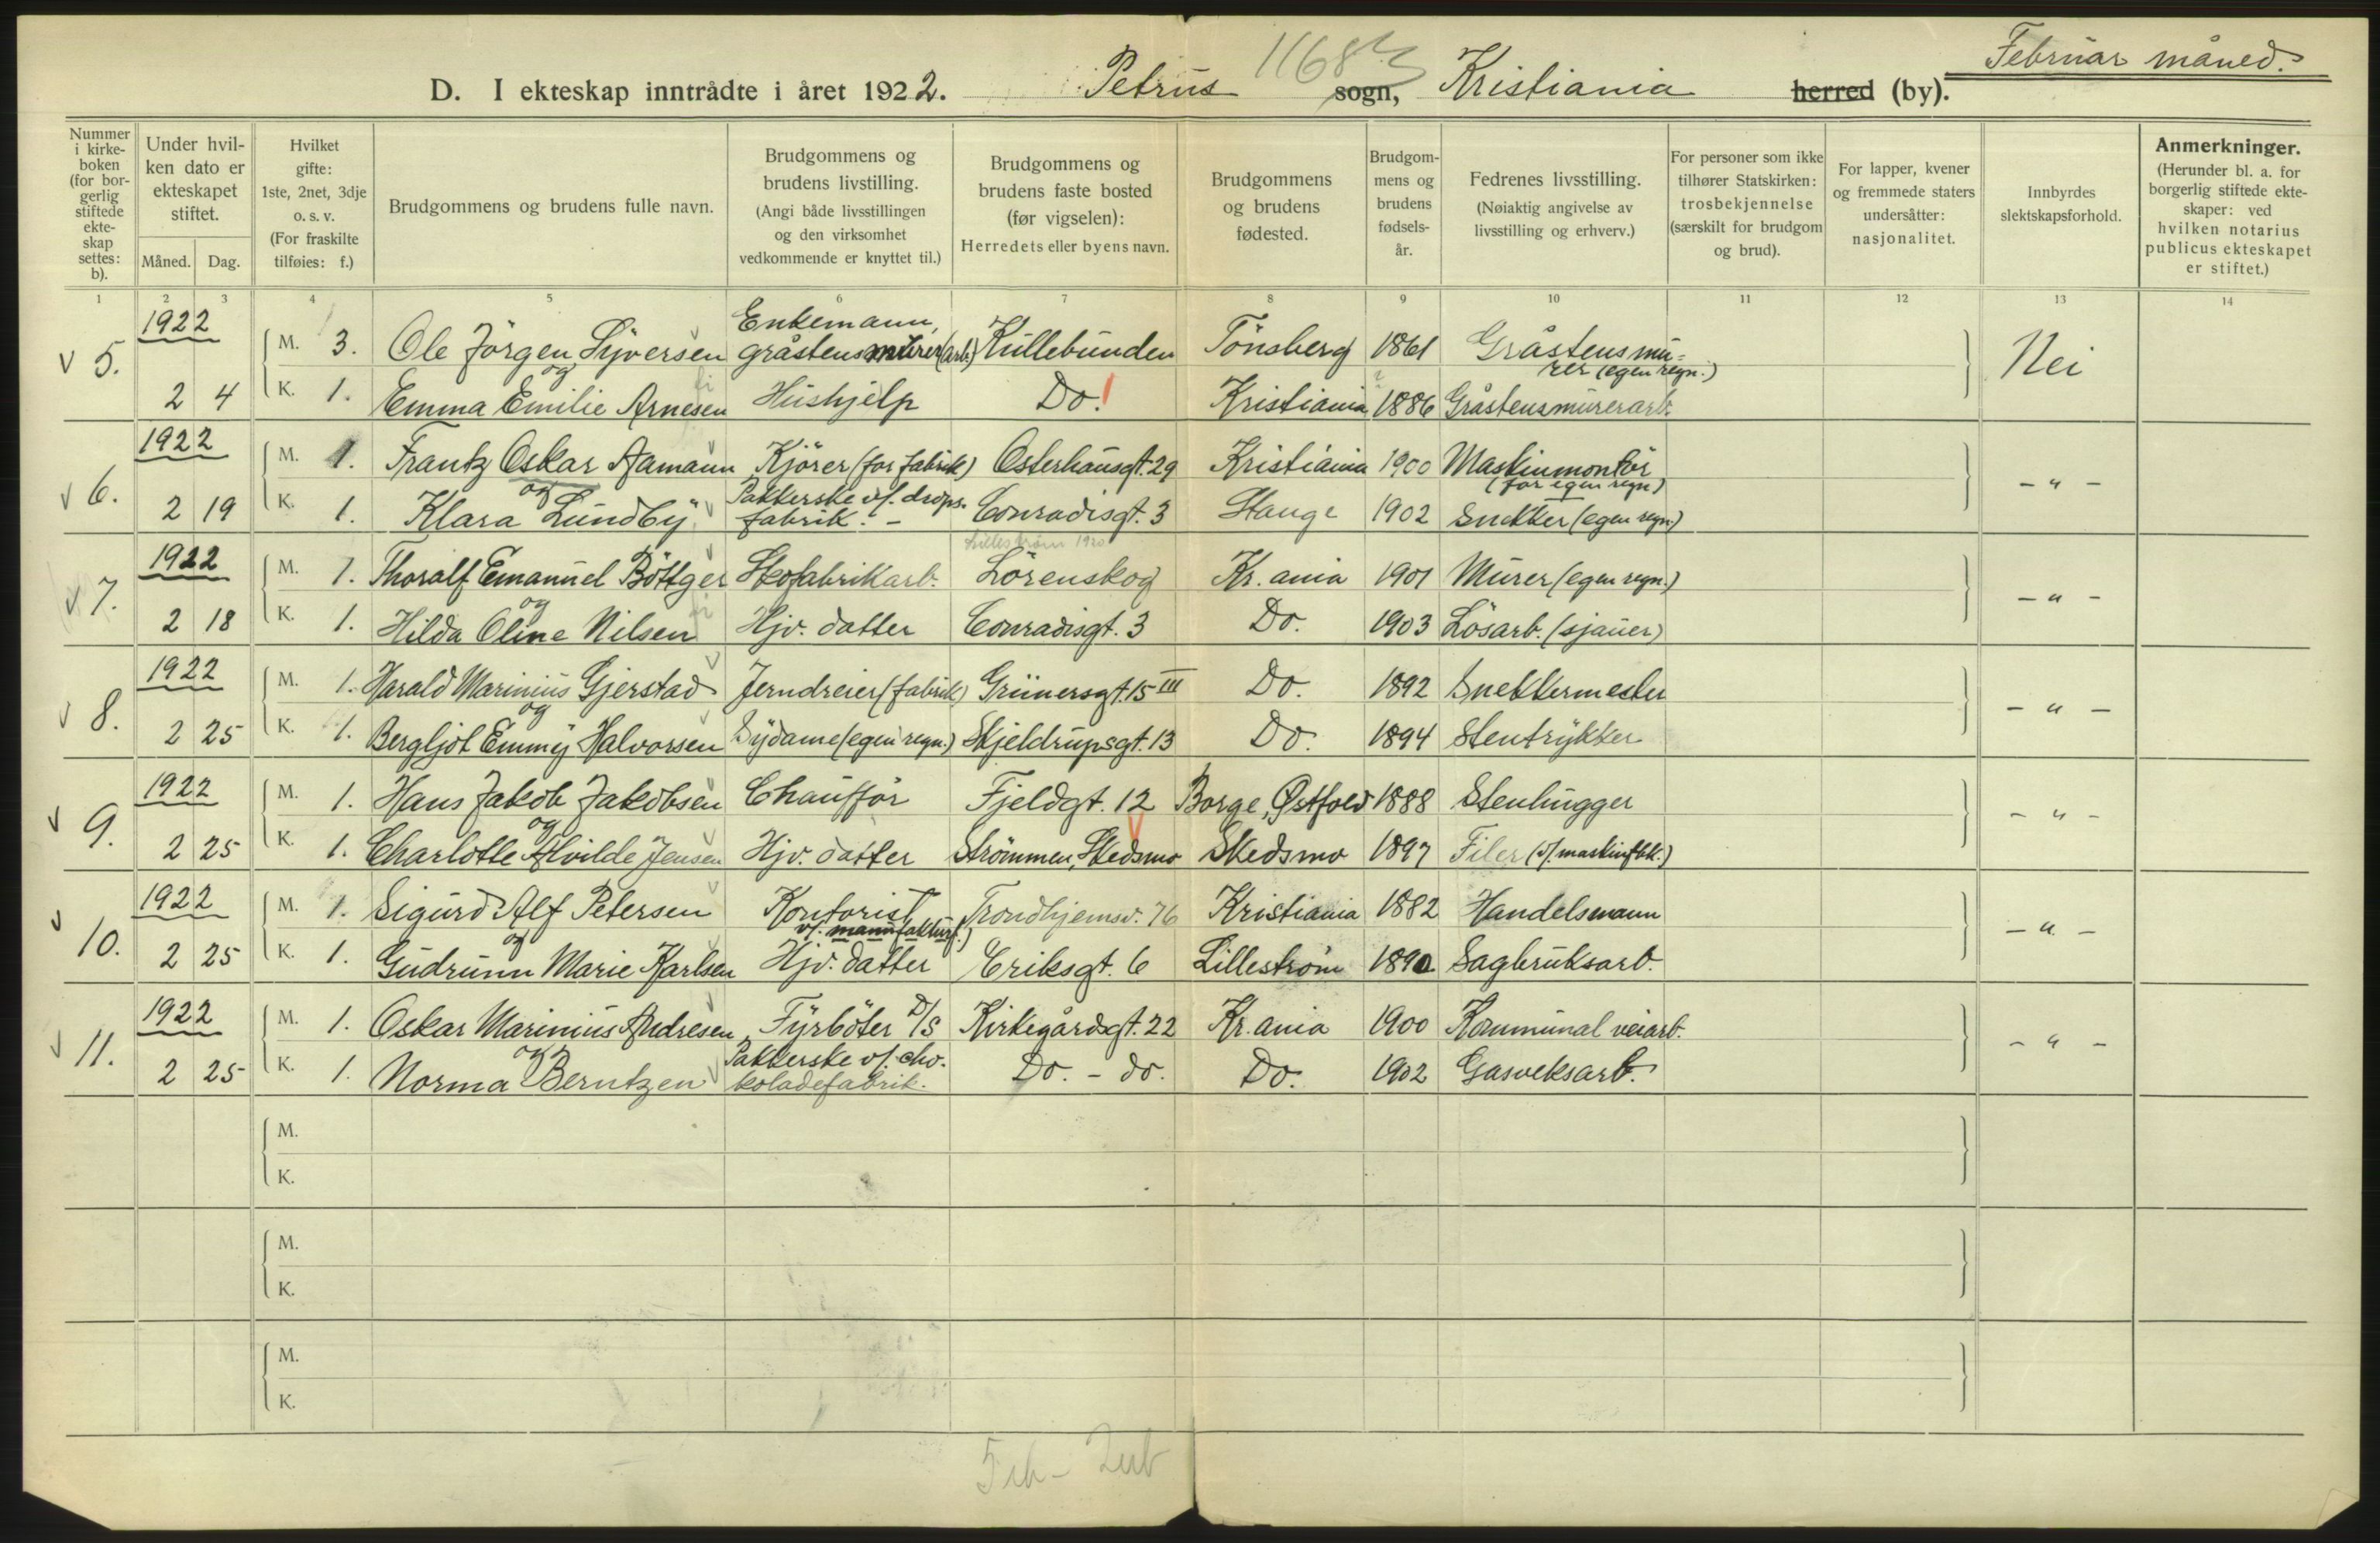 Februar måned.
1168
D. I ekteskap inntrådte i året 1922. Petrus sogn, Kristiania herred (by).
Nummer i kirke-boken (for bor-gerlig stiftede ekte-skap settes: b).
Under hvil-ken dato er ekteskapet stiftet.
Måned. Dag.
Hvilket gifte: 1ste, 2net, 3dje o. s. v. (For fraskilte tilføies: f.)
Brudgommens og brudens fulle navn.
Brudgommens og brudens livstilling. (Angi både livsstillingen og den virksomhet vedkommende er knyttet til.)
Brudgommens og brudens faste bosted (før vigselen): Herredets eller byens navn.
Brudgommens og brudens fødested.
Brudgom-mens og brudens fødsels-år.
Fedrenes livsstilling. (Nøiaktig angivelse av livsstilling og erhverv.)
For personer som ikke tilhører Statskirken: trosbekjennelse (særskilt for brudgom og brud).
For lapper, kvener og fremmede staters undersåtter: nasjonalitet.
Innbyrdes slektskapsforhold.
Anmerkninger. (Herunder bl. a. for borgerlig stiftede ekte-skaper: ved hvilken notarius publicus ekteskapet er stiftet.)
1 2 3 4 5 6 7 8 9 10 11 12 13 14
v 5. 1922 M. 3. Ole Jörgen Syversen Enkemann, gråstensmurer (arb.) Kullebunden Tönsberg 1861 Gråstensmu-rer (egen regn.) Nei
2 4 K. 1. og Emma Emilie Arnesen Hushjelp Do. Kristiania 1886 Gråstensmurerarb.
v 6. 1922 M. 1. Frantz Oskar Aamann Kjörer (for fabrik) Osterhausgt. 29 Kristiania 1900 Maskinmontör (for egen regn) - " -
2 19 K. 1. og Klara Lundby Pakkerske v/. drops-fabrik. - Conradisgt. 3 Stange 1902 Snekker (egen regn.)
Lilleström 1920
v 7. 1922 M. 1. Thoralf Emanuel Böttger Skofabrikarb. Lörenskog Kr.ania 1901 Murer (egen regn.) - " -
2 18 K. 1. og Hilda Oline Nilsen Hjv. datter Conradisgt. 3 Do. 1903 Lösarb. (sjauer)
v 8. 1922 M. 1. Harald Marinius Gjerstad Jerndreier (fabrik) Grünersgt. 15 III Do. 1892 Snekkermester - " -
2 25 K. 1. og Bergljot Emmy Halvorsen Sydame (egen regn.) Skjeldrupsgt. 13 Do. 1894 Stentrykker
v 9. 1922 M. 1. Hans Jakob Jakobsen Chaufför Fjeldgt. 12 Borge, Østfold 1888 Stenhugger - " -
2 25 K. 1. og Charlotte Alvilde Jensen Hjv. datter Strömmen, Skedsmo Skedsmo 1897 Filer (v/ maskinfbk.)
v 10. 1922 M. 1. Sigurd Alf Petersen Kontorist v/. manufakturf.) Trondhjemsv. 76 Kristiania 1882 Handelsmann - " -
2 25 K. 1. og Gudrunn Marie Karlsen Hjv. datter Eriksgt. 6 Lilleström 1890 Sagbruksarb.
v 11. 1922 M. 1. Oskar Marinius Andresen Fyrböter D/S Kirkegårdsgt. 22 Kr.ania 1900 Kommunal veiarb. - " -
2 25 K. 1. og Norma Berntzen Pakkerske v/. cho-koladefabrik. Do. - do. Do. 1902 Gasveksarb.
M.
K.
M.
K.
M.
K.